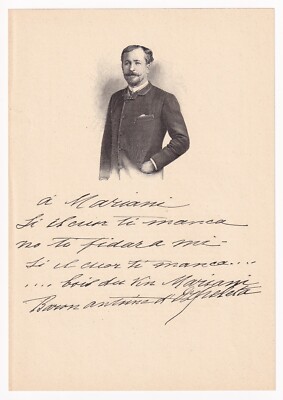 á Mariani
Si el cuor ti manca
no te fidar a mi -
Si el cuor te manca...
.... bois du Vin Mariani
Baron Antoine d'